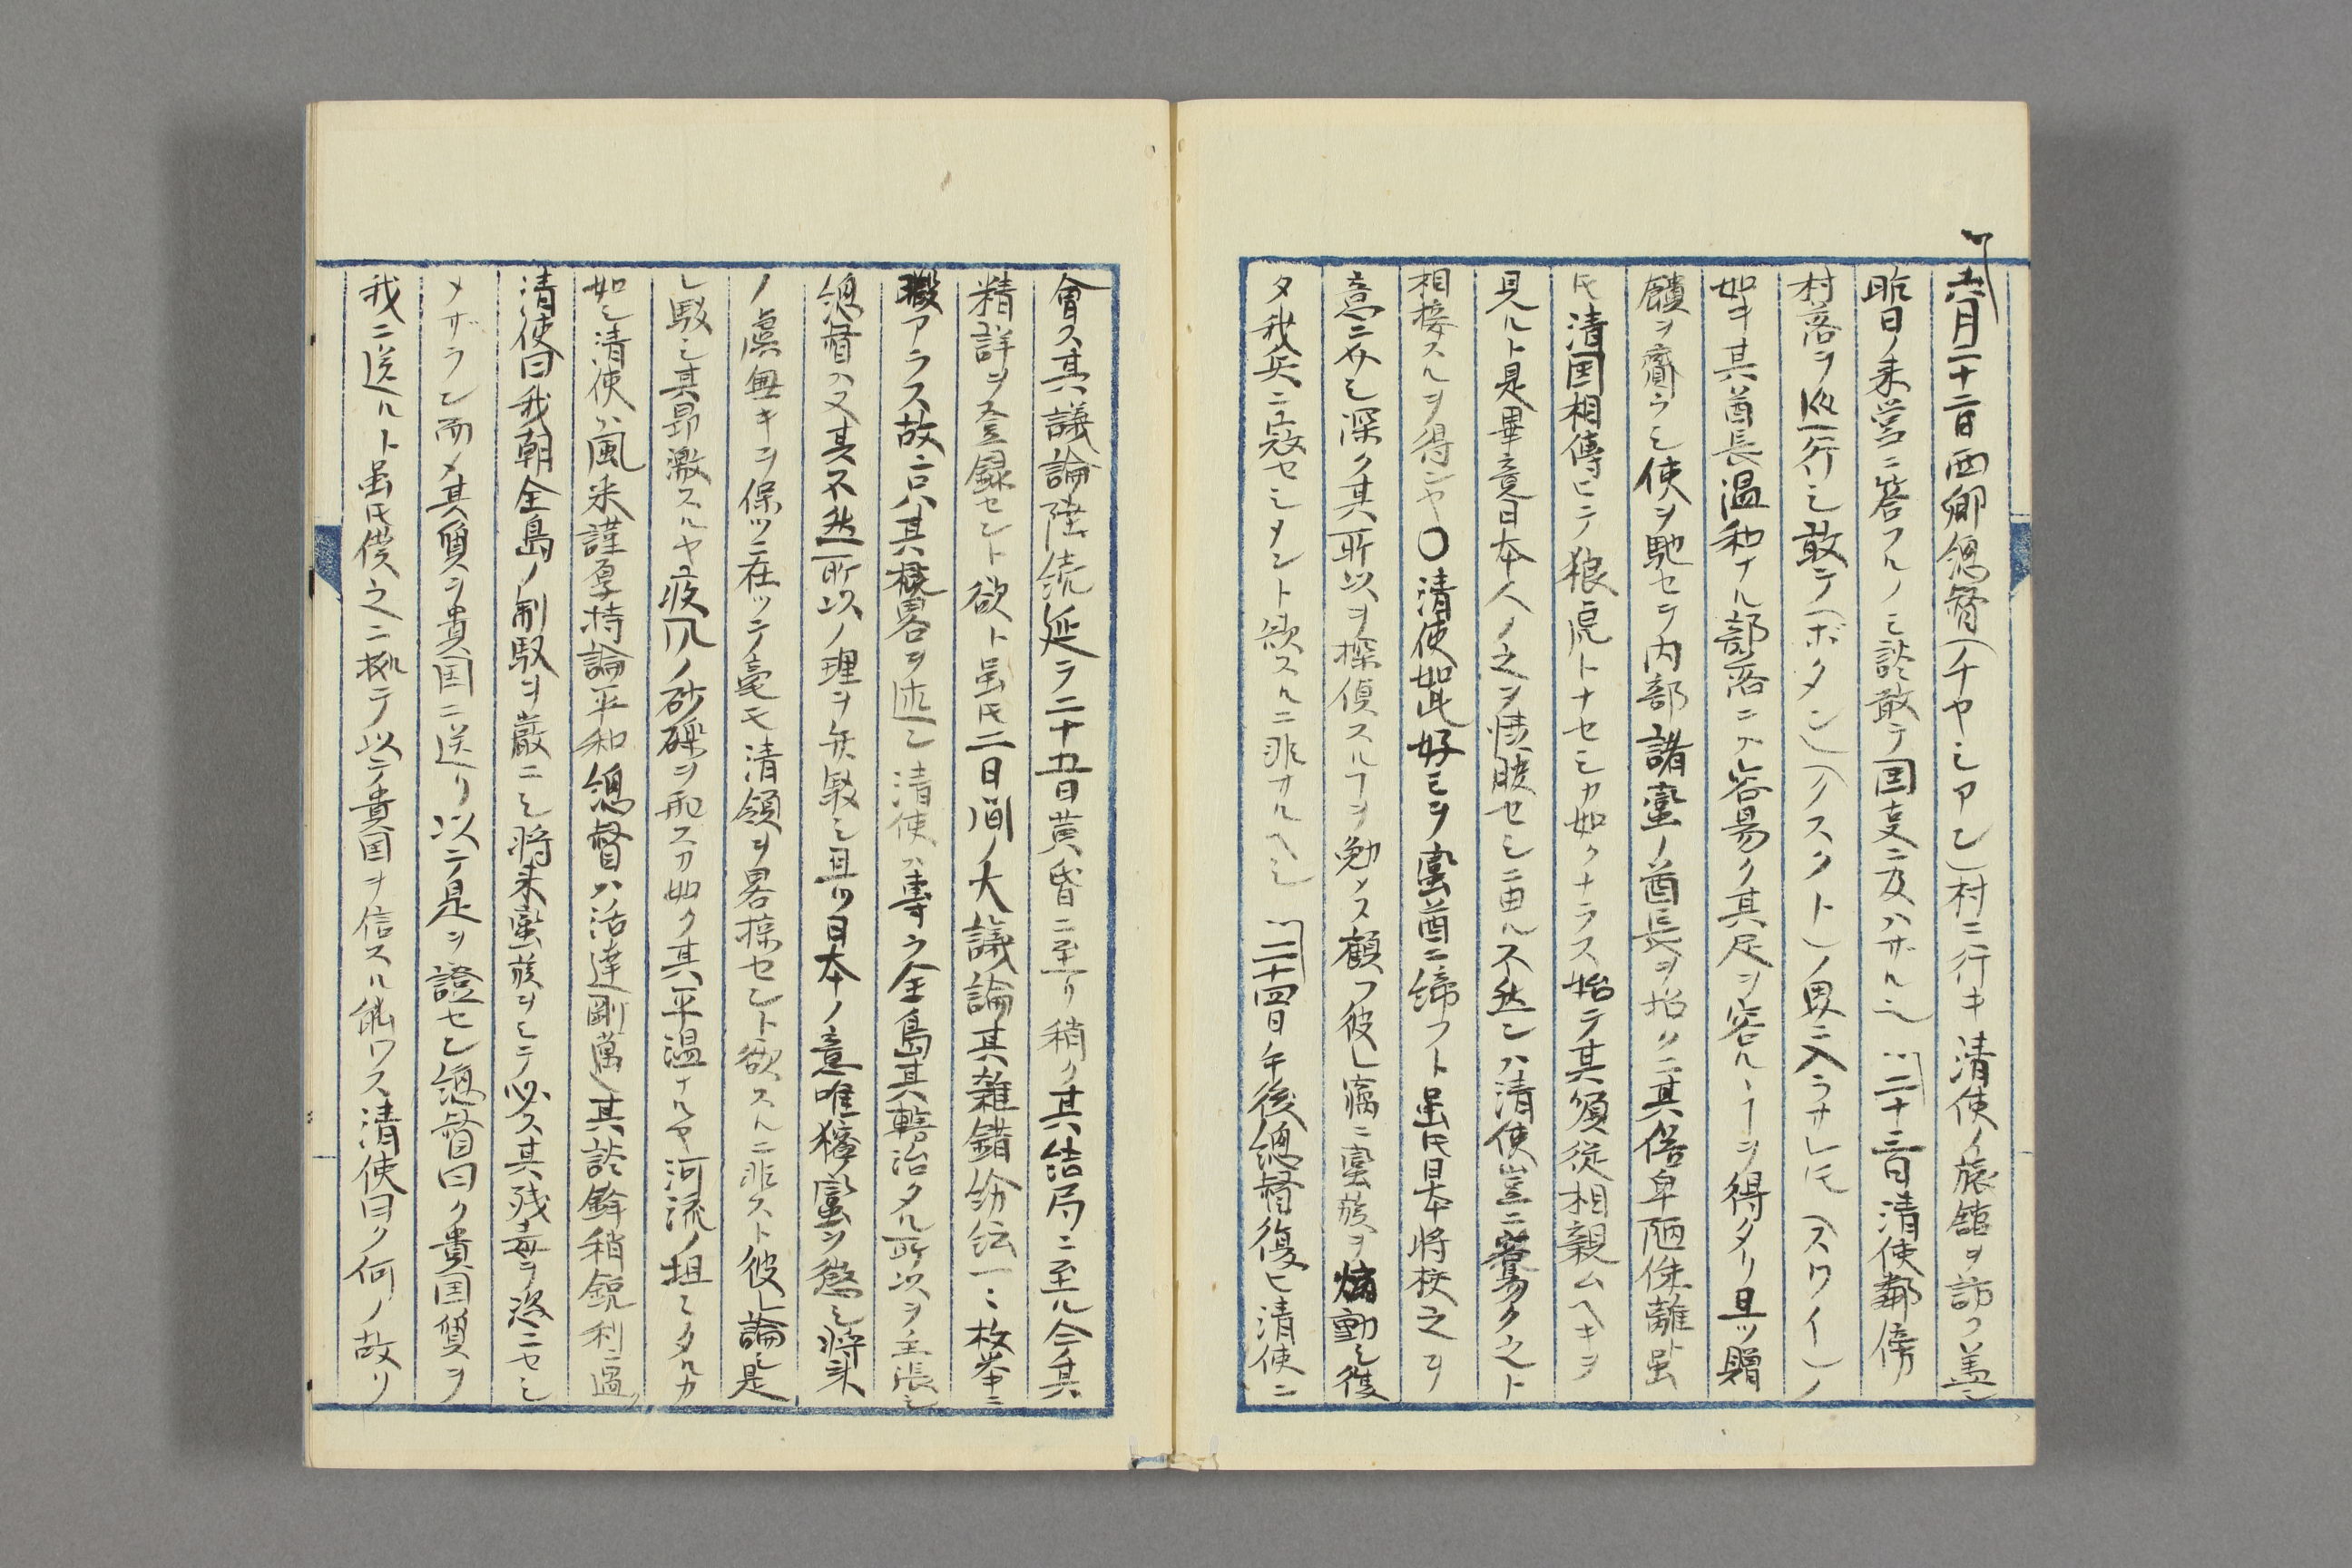 六月二十二日西郷總督(チヤシアン)村ニ行キ清使ノ旅舘ヲ訪フ蓋シ
昨日ノ来営ニ答フルノミ談敢テ国事ニ及ハザルニ 二十三日清使鄰傍
村落ヲ巡行シ敢テ(ボタン)(クスクト)ノ界ニ入ラサレ𪜈(スワイ)ノ
如キ其酋長温和ナル部落ニハ容易ク其足ヲ容ルヽヿヲ得タリ且ツ贈
饋ヲ齎ラシ使ヲ馳セテ内部諸蛮ノ酋長ヲ招クニ其俗卑陋侏離ト虽
𪜈清国相傳ヒテ狼虎トナセシカ如クナラス始テ其須従相親ムヘキヲ
見ルト是畢竟日本人ノ之ヲ悽酸セシニ由ル不然ンハ清使豈ニ容易ク之ト
相接スルヲ得ンヤ〇清使如此好ミヲ蛮酋ニ締フト虽𪜈日本将校之ヲ
意ニ介セシ深ク其所以ヲ探偵スルヿヲ勉メス顧フ彼レ窃ニ蛮族ヲ煽動シ復
タ我兵ニ寇セシメント欲スルニ非サルヘシ 二十四日午後總督復ヒ清使ニ
會ス其議論陸続延テ二十五日黄昏ニ至リ稍ク其結局ニ至ル今其
精詳ヲ登録セント欲ト虽𪜈二日间ノ大議論其雑錯紛紜一々枚挙ニ
暇アラス故ニ只其概畧ヲ述ン清使ハ専ラ全島其轄治タル所以ヲ主張シ
總督ハ又其不然所以ノ理ヲ弁駁シ且ツ日本ノ意唯獰蛮ヲ懲シ将来
ノ虞無キヲ保ツニ在ツテ毫モ清領ヲ畧掠セント欲スルニ非スト彼レ論シ是
レ駁シ其昂激スルヤ疾风ノ砂礫ヲ飛スカ如ク其平温ナルヤ河流ノ坦シタルカ
如シ清使ハ風采謹厚持論平和總督ハ活達剛萬其談鋒稍鋭利ニ過ク
清使曰我朝全島ノ制馭ヲ厳ニシ将来蛮族ヲシテ必ス其残毒ヲ恣ニセシ
メザラン而メ其質ヲ貴国ニ送リ以テ是ヲ證セン總督曰ク貴国質ヲ
我ニ送ルト虽𪜈僕之ニ拠テ以テ貴国ヲ信スル能ワス清使曰ク何ノ故リ